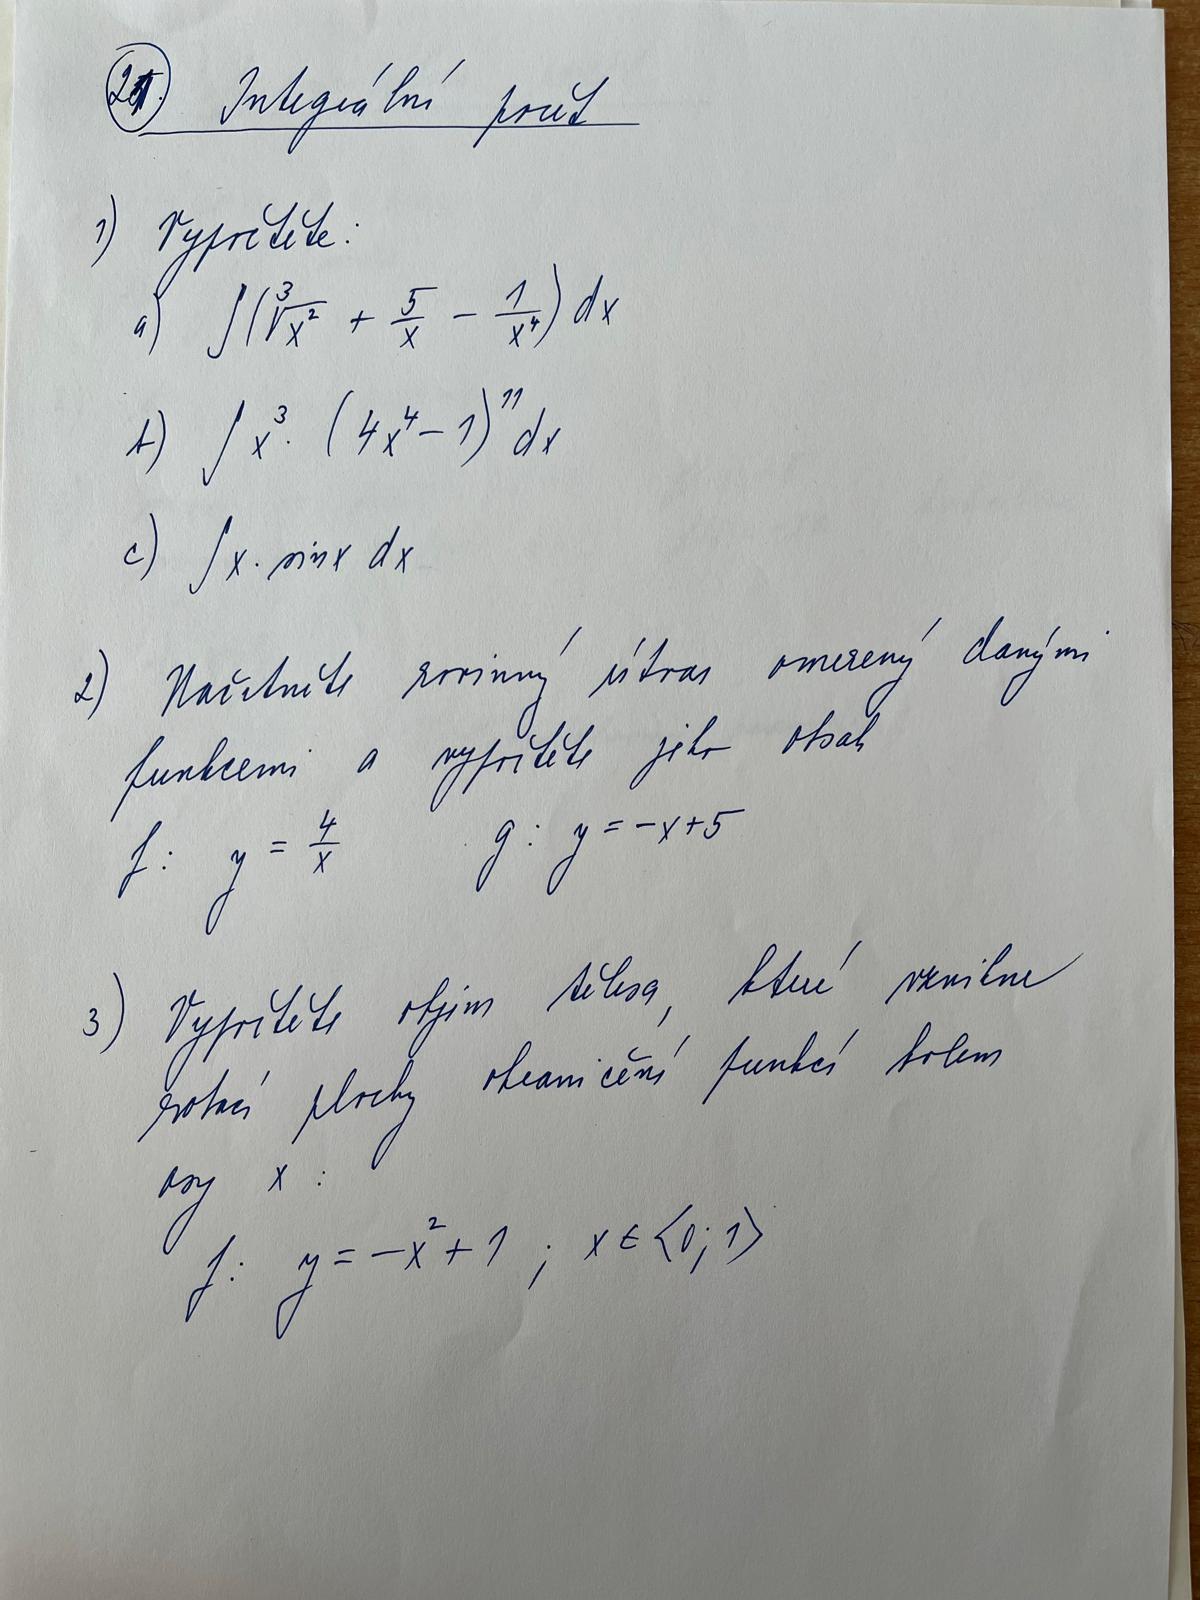 21. Integrální počet
1) Vypočtěte:
a) ∫(∛x² + 5/x − 1/x⁴) dx
b) ∫x³·(4x⁴−1)¹¹ dx
c) ∫x·sinx dx
2) Načrtněte rovinný útvar omezený danými
funkcemi a vypočtěte jeho obsah
f: y = 4/x g: y = −x+5
3) Vypočtěte objem tělesa, které vznikne
rotací plochy ohraničení funkcí kolem
osy x:
f: y = −x²+1 ; x ∈ ⟨0;1⟩